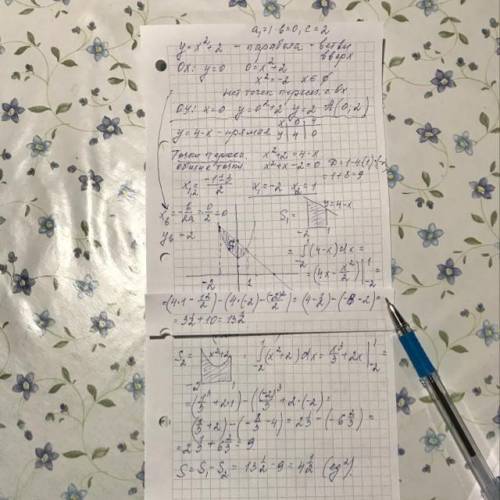 a=1 b=0, c=2
y=x²+2 - парабола - ветви вверх
OX: y=0 0=x²+2
x²=-2 x∈∅
нет точек пересеч. с OX
OY: x=0 y=0²+2 y=2 A(0;2)
x 0 4
y=4-x - прямая y 4 0
Точки пересеч. x²+2=4-x
общие точки x²+x-2=0 D=1-4·1·(-2)
=1+8=9
x₁,₂=(-1±3)/2 x₁=-2 x₂=1
x_в=-b/2a=0/2=0 S₁= y=4-x
y_в=2 -2 1
= ∫₋₂¹(4-x)dx=
-2 1 =(4x-x²/2)|₋₂¹=
=(4·1-1²/2)-(4·(-2)-(-2)²/2)=(4-1/2)-(-8-2)=
=3 1/2+10=13 1/2
S₂= x²+2 =∫₋₂¹(x²+2)dx=x³/3+2x|₋₂¹
-2 1
=(1³/3+2·1)-((-2)³/3+2·(-2))=
=(1/3+2)-(-8/3-4)=2 1/3-(-6 2/3)=
=2 1/3+6 2/3=9
S=S₁-S₂=13 1/2-9=4 1/2 (ед²)